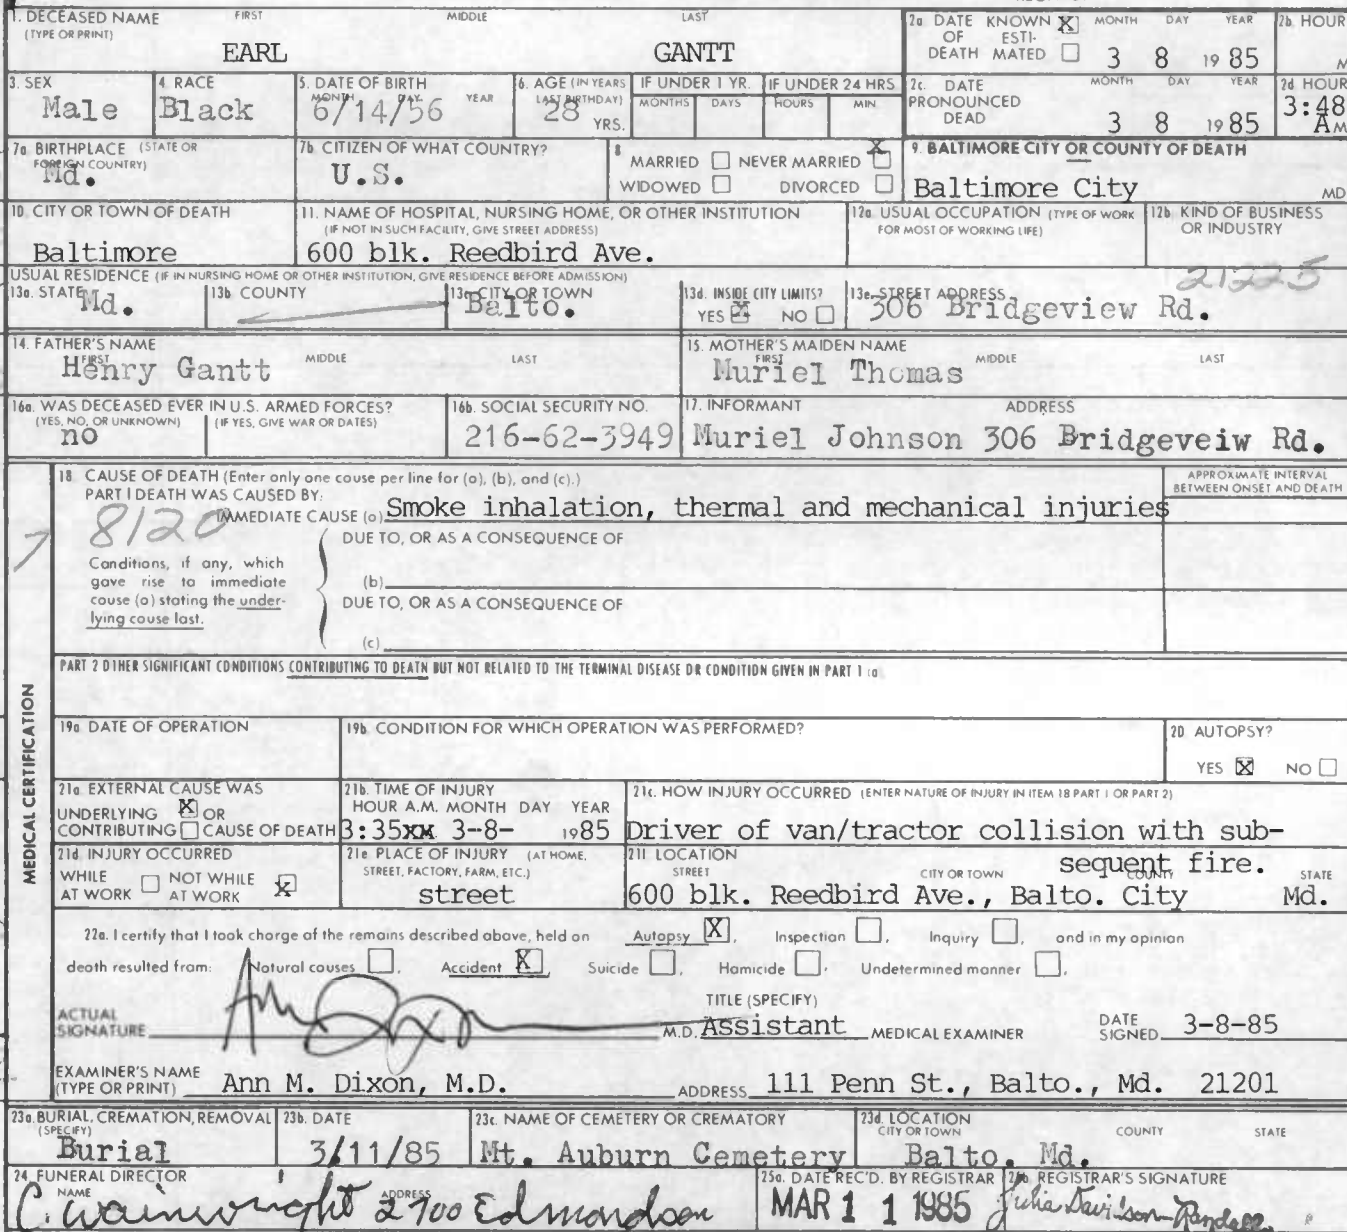 1. DECEASED NAME FIRST MIDDLE LAST
(TYPE OR PRINT)
EARL GANTT
2a. DATE OF DEATH KNOWN X ESTIMATED MONTH DAY YEAR
3 8 1985
2b. HOUR
M
3. SEX
Male
4. RACE
Black
5. DATE OF BIRTH
MONTH DAY YEAR
6/14/56
6. AGE (IN YEARS LAST BIRTHDAY)
28 YRS.
IF UNDER 1 YR.
MONTHS DAYS
IF UNDER 24 HRS
HOURS MIN.
2c. DATE PRONOUNCED DEAD MONTH DAY YEAR
3 8 1985
2d HOUR
3:48
A M
7a BIRTHPLACE (STATE OR FOREIGN COUNTRY)
Md.
7b. CITIZEN OF WHAT COUNTRY?
U.S.
8 MARRIED NEVER MARRIED X
WIDOWED DIVORCED
9. BALTIMORE CITY OR COUNTY OF DEATH
Baltimore City MD
10 CITY OR TOWN OF DEATH
Baltimore
11. NAME OF HOSPITAL, NURSING HOME, OR OTHER INSTITUTION
(IF NOT IN SUCH FACILITY, GIVE STREET ADDRESS)
600 blk. Reedbird Ave.
12a. USUAL OCCUPATION (TYPE OF WORK
FOR MOST OF WORKING LIFE)
12b. KIND OF BUSINESS
OR INDUSTRY
USUAL RESIDENCE (IF IN NURSING HOME OR OTHER INSTITUTION, GIVE RESIDENCE BEFORE ADMISSION)
13a. STATE
Md.
13b. COUNTY
13c. CITY OR TOWN
Balto.
13d. INSIDE CITY LIMITS?
YES X NO
13e. STREET ADDRESS
21225
306 Bridgeview Rd.
14. FATHER'S NAME
FIRST MIDDLE LAST
Henry Gantt
15. MOTHER'S MAIDEN NAME
FIRST MIDDLE LAST
Muriel Thomas
16a. WAS DECEASED EVER IN U.S. ARMED FORCES?
(YES, NO, OR UNKNOWN) (IF YES, GIVE WAR OR DATES)
no
16b. SOCIAL SECURITY NO.
216-62-3949
17. INFORMANT ADDRESS
Muriel Johnson 306 Bridgeveiw Rd.
MEDICAL CERTIFICATION
18 CAUSE OF DEATH (Enter only one cause per line for (a), (b), and (c).)
APPROXIMATE INTERVAL
BETWEEN ONSET AND DEATH
PART I DEATH WAS CAUSED BY:
8120
IMMEDIATE CAUSE (a) Smoke inhalation, thermal and mechanical injuries
7
DUE TO, OR AS A CONSEQUENCE OF
Conditions, if any, which
gave rise to immediate
cause (a) stating the under-
lying cause last.
(b)
DUE TO, OR AS A CONSEQUENCE OF
(c)
PART 2 OTHER SIGNIFICANT CONDITIONS CONTRIBUTING TO DEATH BUT NOT RELATED TO THE TERMINAL DISEASE OR CONDITION GIVEN IN PART 1 (a)
19a DATE OF OPERATION
19b. CONDITION FOR WHICH OPERATION WAS PERFORMED?
20. AUTOPSY?
YES X NO
21a. EXTERNAL CAUSE WAS
UNDERLYING X OR
CONTRIBUTING CAUSE OF DEATH
21b. TIME OF INJURY
HOUR A.M. MONTH DAY YEAR
3:35xx 3-8- 1985
21c. HOW INJURY OCCURRED (ENTER NATURE OF INJURY IN ITEM 18 PART 1 OR PART 2)
Driver of van/tractor collision with sub-
sequent fire.
21d. INJURY OCCURRED
WHILE AT WORK NOT WHILE AT WORK X
21e. PLACE OF INJURY (AT HOME,
STREET, FACTORY, FARM, ETC.)
street
21f. LOCATION
STREET CITY OR TOWN COUNTY STATE
600 blk. Reedbird Ave., Balto. City Md.
22a. I certify that I took charge of the remains described above, held on Autopsy X, Inspection, Inquiry, and in my opinion
death resulted from: Natural causes, Accident X Suicide, Homicide, Undetermined manner.
ACTUAL
SIGNATURE
Ann Dixon
M.D.
TITLE (SPECIFY)
Assistant MEDICAL EXAMINER
DATE
SIGNED 3-8-85
EXAMINER'S NAME
(TYPE OR PRINT) Ann M. Dixon, M.D.
ADDRESS 111 Penn St., Balto., Md. 21201
23a. BURIAL, CREMATION, REMOVAL
(SPECIFY)
Burial
23b. DATE
3/11/85
23c. NAME OF CEMETERY OR CREMATORY
Mt. Auburn Cemetery
23d. LOCATION
CITY OR TOWN COUNTY STATE
Balto. Md.
24. FUNERAL DIRECTOR
NAME ADDRESS
C. Wainwright 2700 Edmondson
25a. DATE REC'D. BY REGISTRAR
MAR 11 1985
25b. REGISTRAR'S SIGNATURE
Julia Davidson-Randall